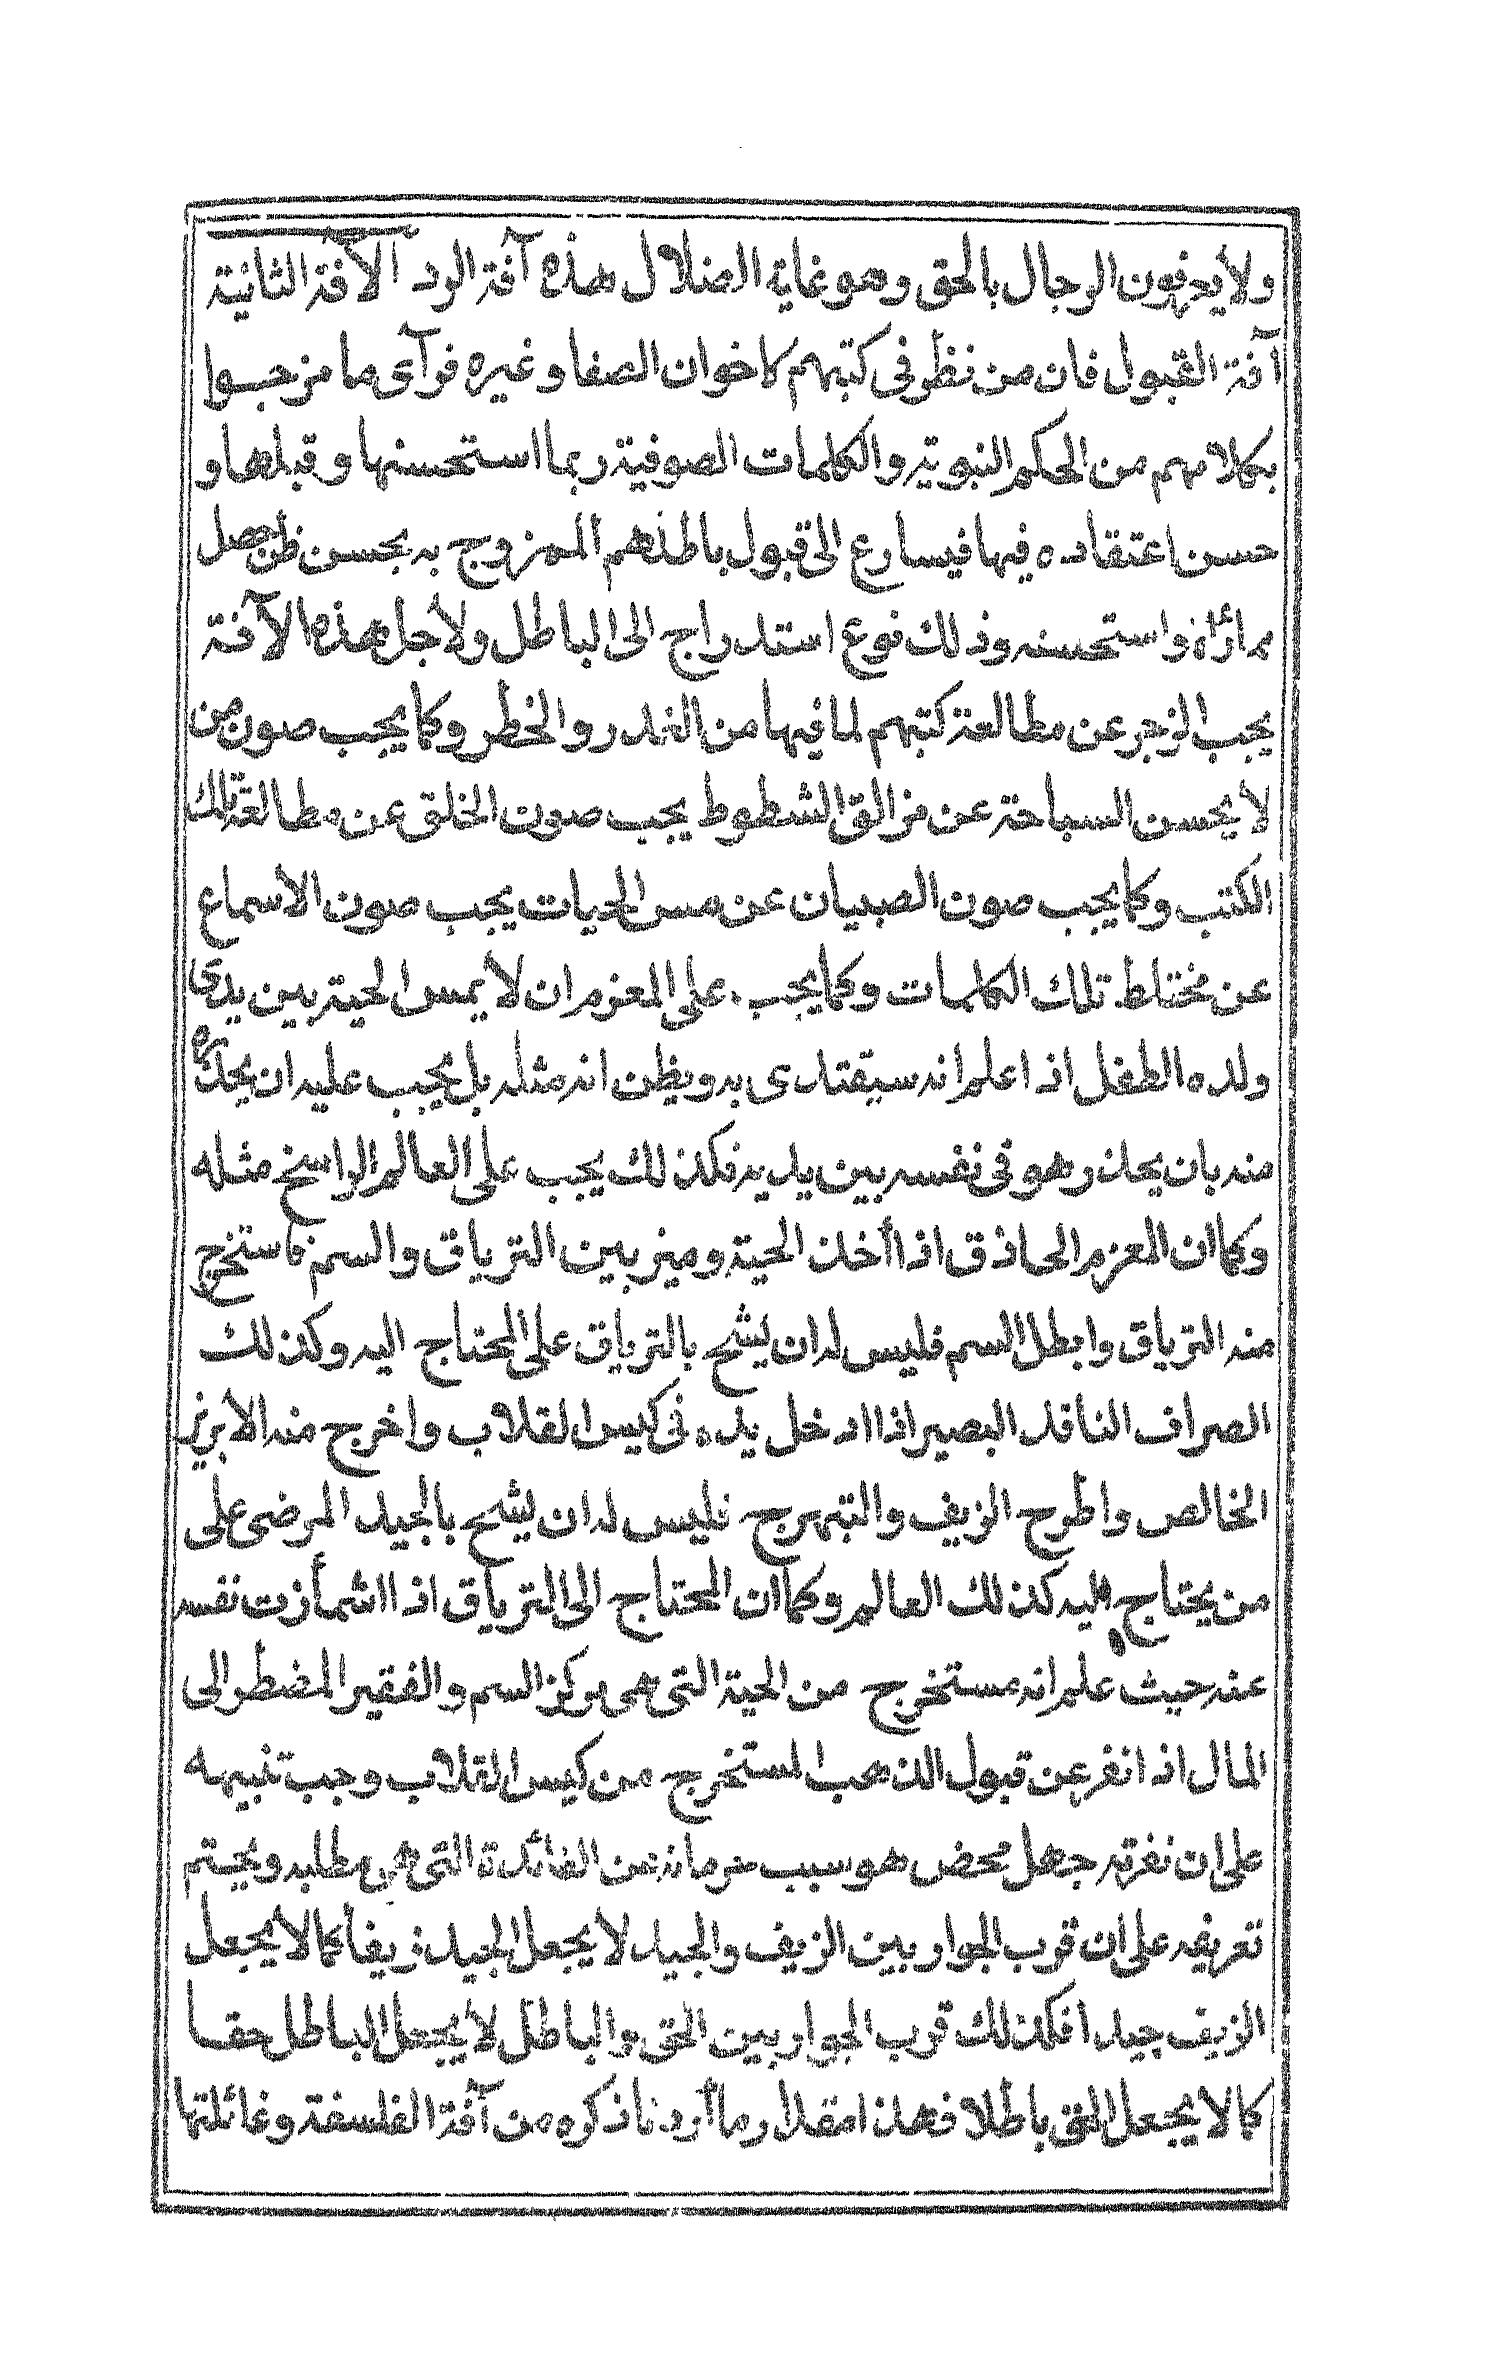 ولا يعرفون الرجال بالحق وهو غاية الضلال هذه آفة الرد الآفة الثانية
آفة القبول فان من نظر فى كتبهم كاخوان الصفا وغيره فرآى ما مزجوا
بكلامهم من الحكم النبوية والكلمات الصوفية ربما استحسنها وقبلها و
حسن اعتقاده فيها فيسارع الى قبول باطلهم الممزوج به بحسن ظن حصل
مما رأه واستحسنه وذلك نوع استدراج الى الباطل ولأجل هذه الآفة
يجب الزجر عن مطالعة كتبهم لما فيها من الغدر والخطر وكما يجب صون من
لا يحسن السباحة عن مزالق الشطوط يجب صون الخلق عن مطالعة تلك
الكتب وكما يجب صون الصبيان عن مس الحيات يجب صون الاسماع
عن مختلط تلك الكلمات وكما يجب على المعزم ان لا يمس الحية بين يدى
ولده الطفل اذا علم انه سيقتدى به ويظن انه مثله بل يجب عليه ان يحذره
منه بان يحذر هو فى نفسه بين يديه فكذلك يجب على العالم الراسخ مثله
وكما ان المعزم الحاذق اذا أخذ الحية وميز بين الترياق والسم فاستخرج
منه الترياق وابطل السم فليس له ان يشح بالترياق على المحتاج اليه وكذلك
الصراف الناقد البصير اذا ادخل يده فى كيس القلاب واخرج منه الابريز
الخالص واطرح الزيف والتبهرج فليس له ان يشح بالجيد المرضى على
من يحتاج اليه كذلك العالم وكما ان المحتاج الى الترياق اذا اشمأزت نفسه
عنه حيث علم انه مستخرج من الحية التى هى مركز السم والفقير المضطر الى
المال اذا نفر عن قبول الذهب المستخرج من كيس القلاب وجب تنبيهه
على ان نفرته جهل محض هو سبب حرمانه عن الفائدة التى هى مطلبه ويحتم
تعريفه على ان قرب الجوار بين الزيف والجيد لا يجعل الجيد زيفأ كما لا يجعل
الزيف جيدا فكذلك قرب الجوار بين الحق والباطل لا يجعل الباطل حقا
كما لا يجعل الحق باطلا فهذا مقدار ما أردنا ذكره من آفة الفلسفة وغائلتها